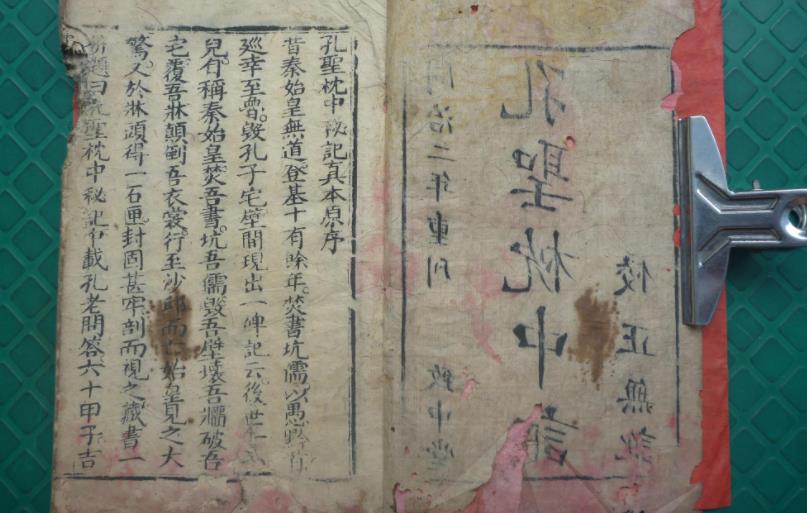 校正無訛
孔聖枕中記
同治二年重刊 中堂
孔聖枕中秘記真本原序
昔秦始皇無道登基十有餘年焚書坑儒以愚黔首
巡幸至魯毀孔子宅壁間現出一碑記云後世
兒自稱秦始皇焚吾書坑吾儒毀吾壁壞吾牆破吾
宅覆吾牀顛倒吾衣裳行至沙邱而亡始皇見之大
驚又於牀頭得一石匣封固甚牢剖而視之藏書一
冊題曰孔聖枕中秘記中載孔老問答六十甲子吉